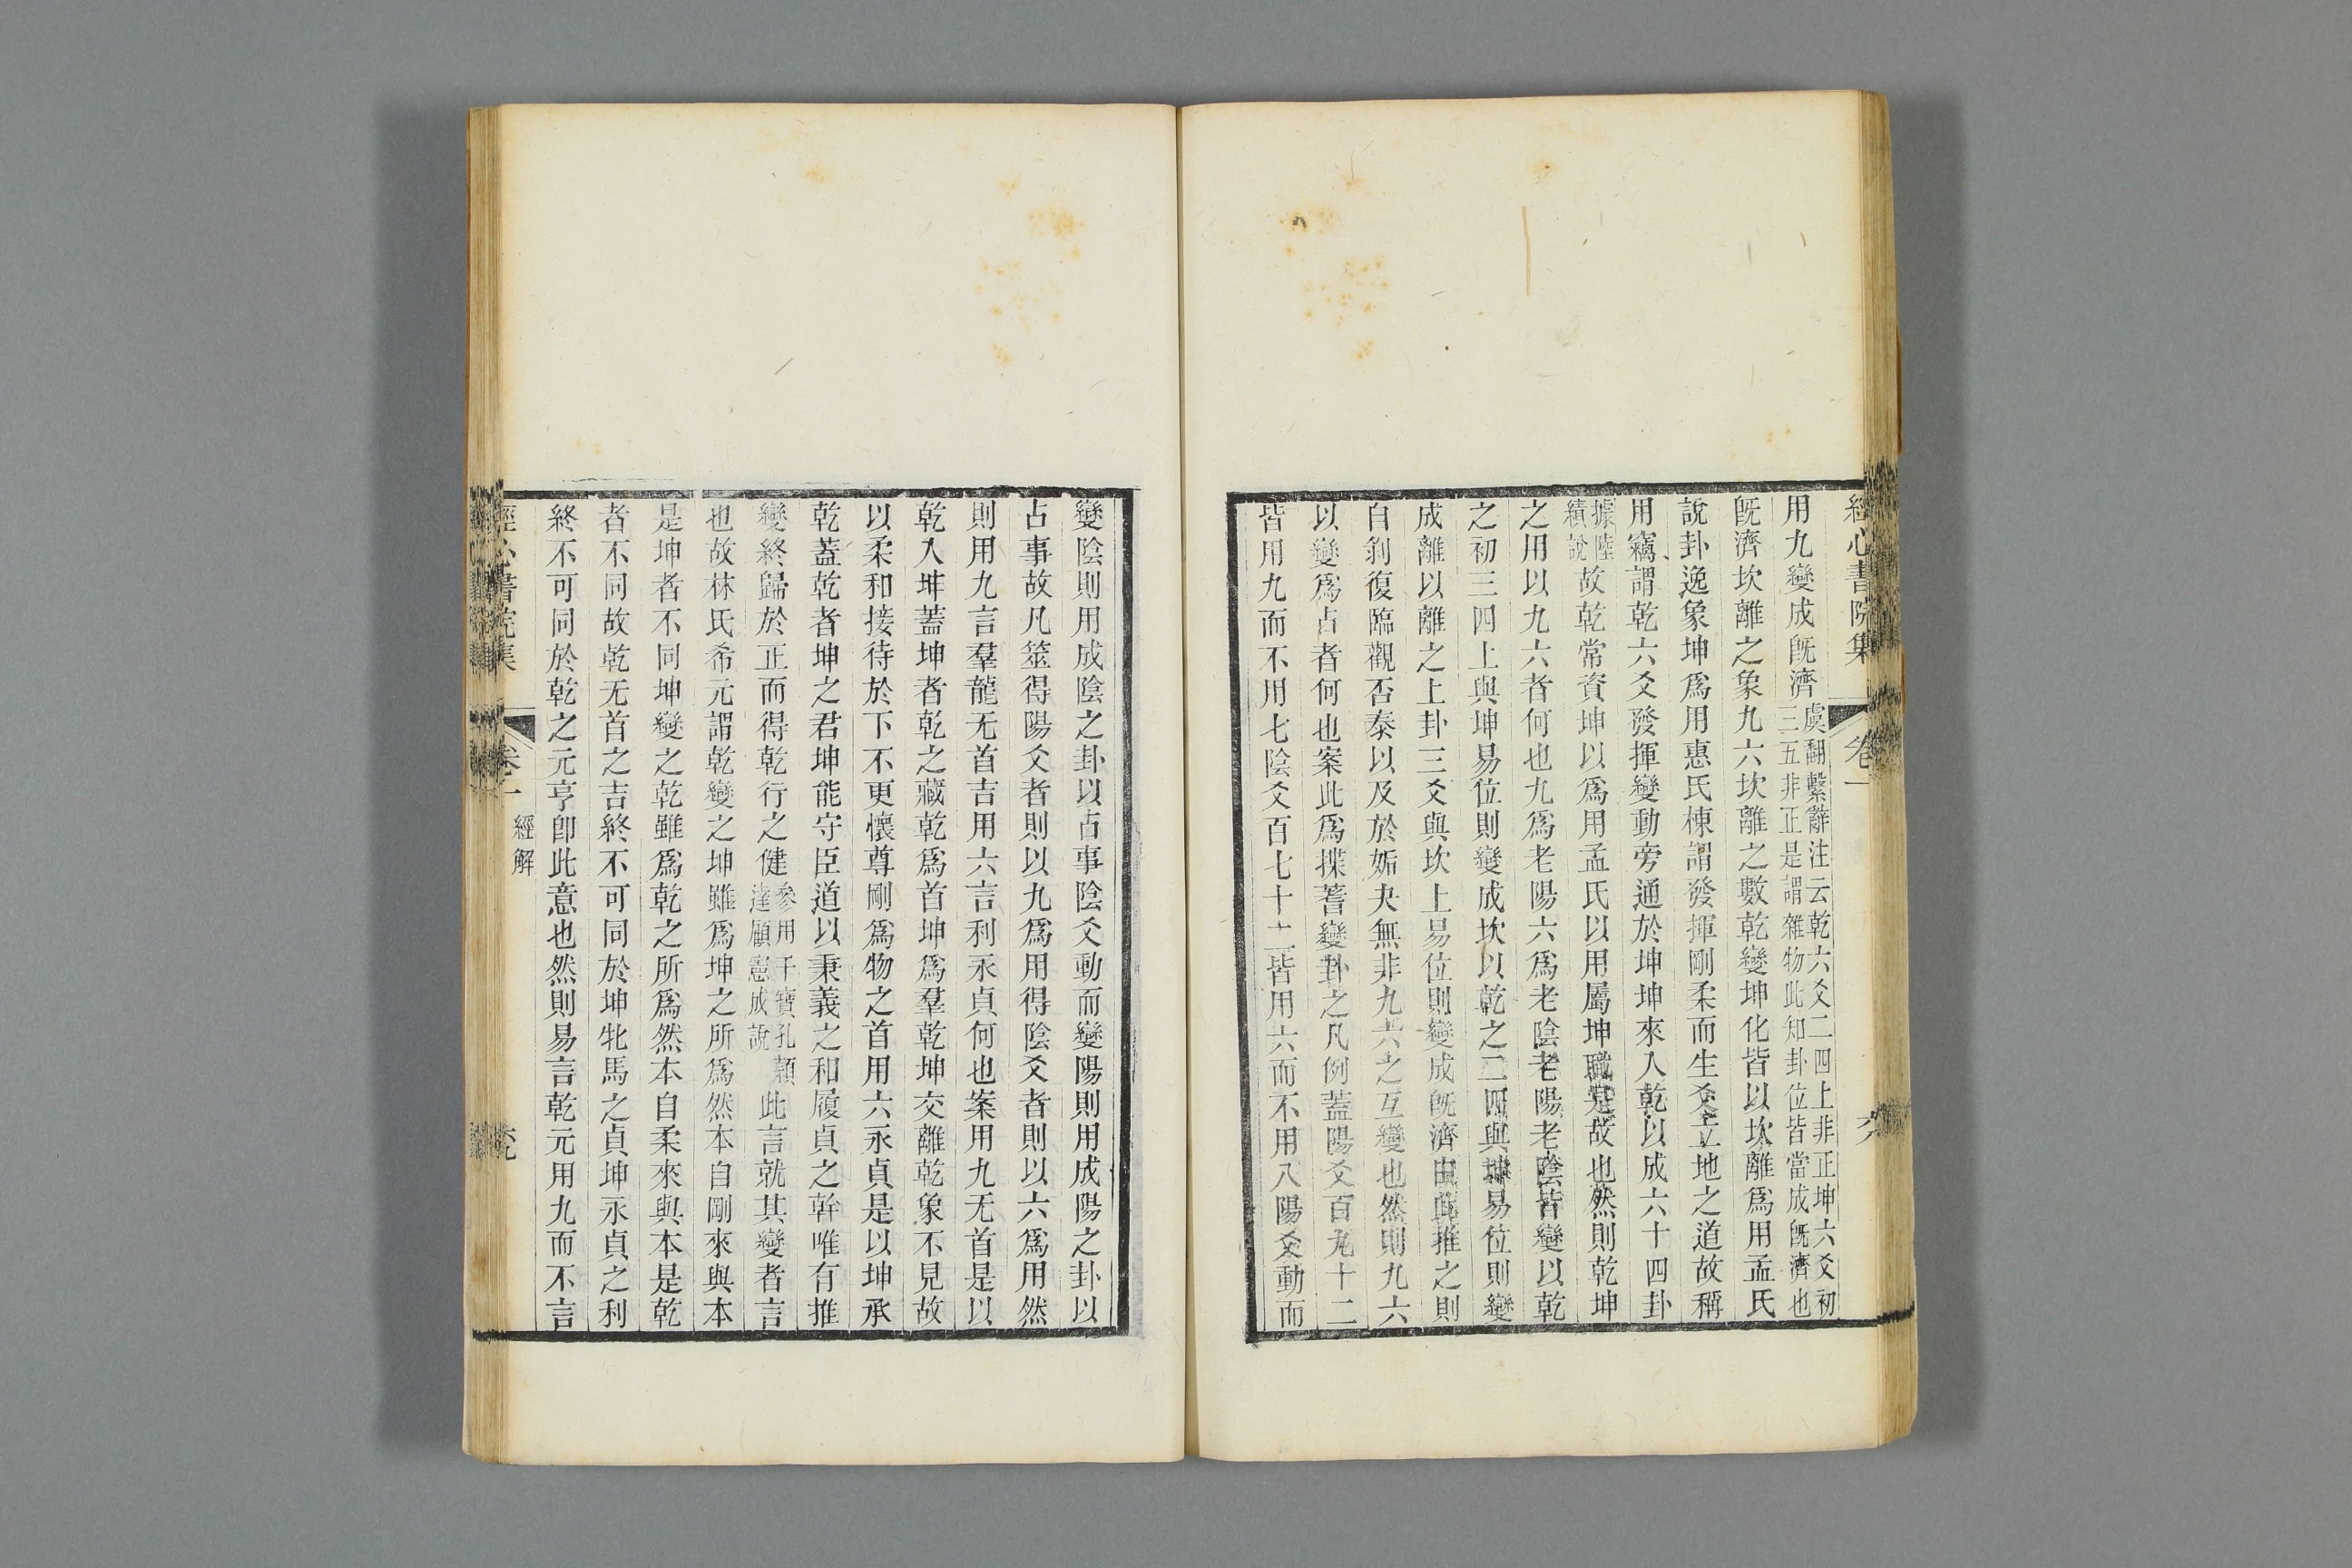 經心書院集 卷一 六
用九變成旣濟虞翻繫辭注云乾六爻二四上非正坤六爻初三五非正是謂雜物此知卦位皆當成旣濟也
旣濟坎離之象九六坎離之數乾變坤化皆以坎離爲用孟氏
說卦逸象坤爲用惠氏棟謂發揮剛柔而生爻立地之道故稱
用竊謂乾六爻發揮變動旁通於坤坤來入乾以成六十四卦
據陸績說故乾常資坤以爲用孟氏以用屬坤職是故也然則乾坤
之用以九六者何也九爲老陽六爲老陰老陽老陰皆變以乾
之初三四上與坤易位則變成坎以乾之二四與坤易位則變
成離以離之上卦三爻與坎上易位則變成旣濟由此推之則
自剝復臨觀否泰以及於姤夬無非九六之互變也然則九六
以變爲占者何也案此爲揲蓍變卦之凡例蓋陽爻百九十二
皆用九而不用七陰爻百七十二皆用六而不用八陽爻動而
變陰則用成陰之卦以占事陰爻動而變陽則用成陽之卦以
占事故凡筮得陽爻者則以九爲用得陰爻者則以六爲用然
則用九言羣龍无首吉用六言利永貞何也案用九无首是以
乾入坤蓋坤者乾之藏乾爲首坤爲羣乾坤交離乾象不見故
以柔和接待於下不更懷尊剛爲物之首用六永貞是以坤承
乾蓋乾者坤之君坤能守臣道以秉義之和履貞之幹唯有推
變終歸於正而得乾行之健參用干寶孔穎達顧憲成說此言就其變者言
也故林氏希元謂乾變之坤雖爲坤之所爲然本自剛來與本
是坤者不同坤變之乾雖爲乾之所爲然本自柔來與本是乾
者不同故乾无首之吉終不可同於坤牝馬之貞坤永貞之利
終不可同於乾之元亨卽此意也然則易言乾元用九而不言
經心書院集 卷一 經解